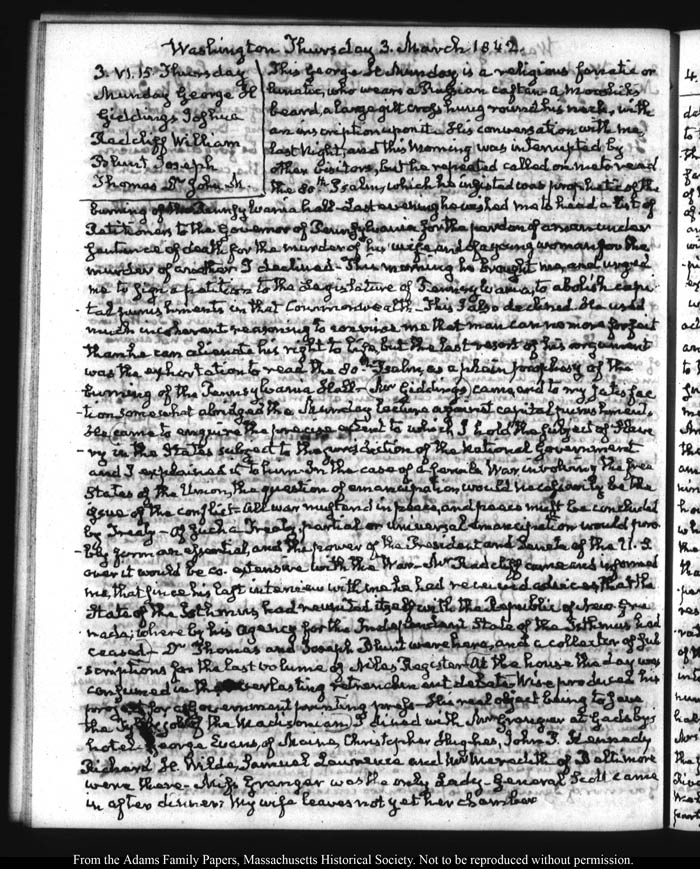 Washington Thursday 3. March 1842.
3. VI. 15 Thursday
Munday George H
Giddings Joshua
Radcliff William
Blunt Joseph
Thomas Dr John M.
This George H. Munday is a religious fanatic or
lunatic, who wears a Russian caftan a
beard, a large gilt cross hung round his neck, with
an inscription upon it. His conversation with me,
last Night, and this Morning was interrupted by
other Visitors, but he repeated called on me to read
the 80th Psalm, which he insisted was prophetic of the
burning of the Pennsylvania hall. Last evening he wished me to head a list of
Petitioners to the Governor of Pennsylvania for the pardon of a man under
sentence of death for the murder of his wife, and of a young woman for the
murder of another. I declined. This morning he brought me, and urged
me to sign a petition to the Legislature of Pennsylvania, to abolish capi-
tal punishments in that Commonwealth. This I also declined. He used
much incoherent reasoning to convince me that man can no more forfeit
than he can alienate his right to life, but the last resort of his argument
was the exhortation to read the 80th Psalm, as a plain prophesy of the
burning of the Pennsylvania Hall. Mr Giddings came, and to my satisfac
-tion somewhat abridged the Munday lecture against capital punishment.
He came to enquire the precise extent to which I hold the subject of Slave
-ry in the States subject to the jurisdiction of the National Government
and I explained it to him. In the case of a servile War involving the free
States of the Union, the question of emancipation would necessarily be the
issue of the conflict. All war must end in peace, and peace must be concluded
by Treaty. Of such a Treaty, partial or universal emancipation would pro
-bably form an essential, and the power of the President and Senate of the U.S.
over it would be co. extensive with the War. Mr Radcliff came and informed
me, that since his last interview with me he had received advices that the
State of the Isthmus had reunited itself with the Republic of New Gra
nada; whereby his Agency for the Independent State of the Isthmus had
ceased. Dr Thomas and Joseph Blunt were here, and a collector of sub
scriptions for the last volume of Niles Register. At the house the day was
consumed in the everlasting retrenchment debate. Wise produced his
project for a Government printing press. His real object being to save
the of the Madisonian. I dined with Mr Granger at Gadsby's
hotel. George Evans, of Maine, Christopher Hughes, John P. Kennedy
Richard H. Wilde, Samuel Lawrence and Mr Meredith of Baltimore
were there. Miss Granger was the only Lady. General Scott came
in after dinner. My wife leaves not yet her chamber
From the Adams Family Papers, Massachusetts Historical Society. Not to be reproduced without permission.